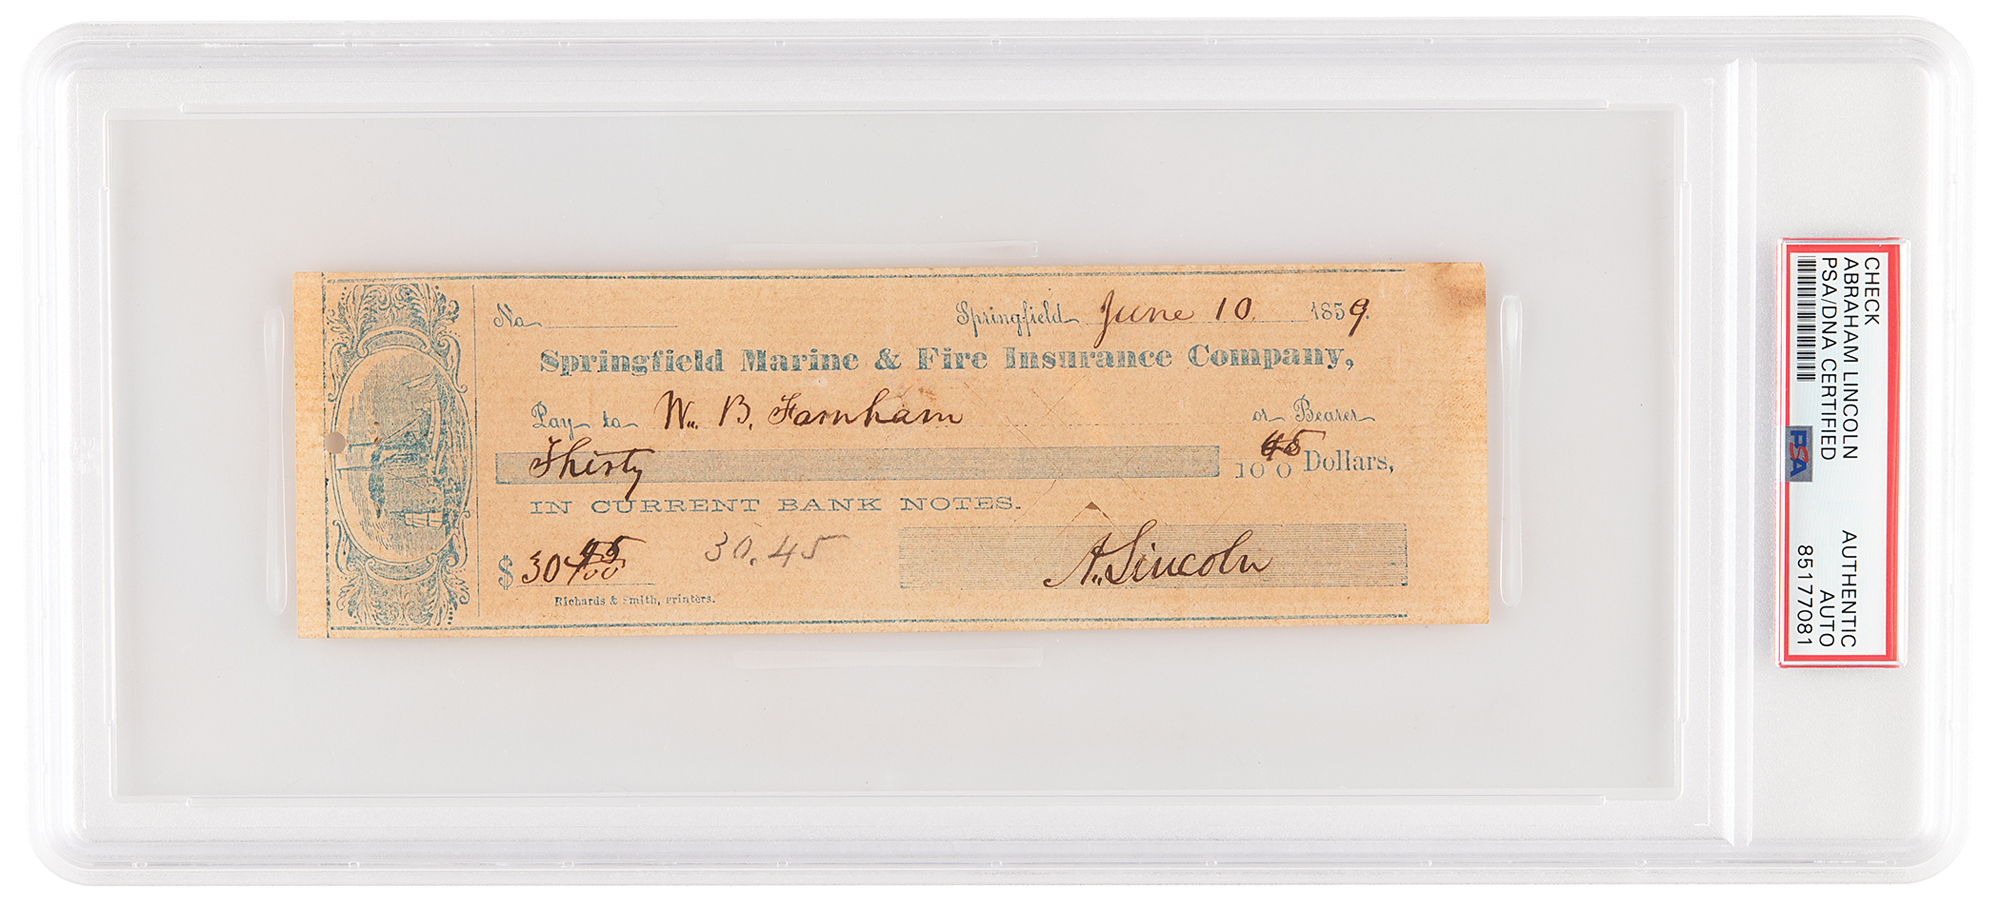 No. Springfield June 10. 1859.
Springfield Marine & Fire Insurance Company,
Pay to W. B. Farnham or Bearer
Thirty 45/100 Dollars,
IN CURRENT BANK NOTES.
$ 30 45/100 30.45 A. Lincoln
Richards & Smith, Printers.
CHECK
ABRAHAM LINCOLN AUTHENTIC
PSA/DNA CERTIFIED AUTO
85177081
PSA